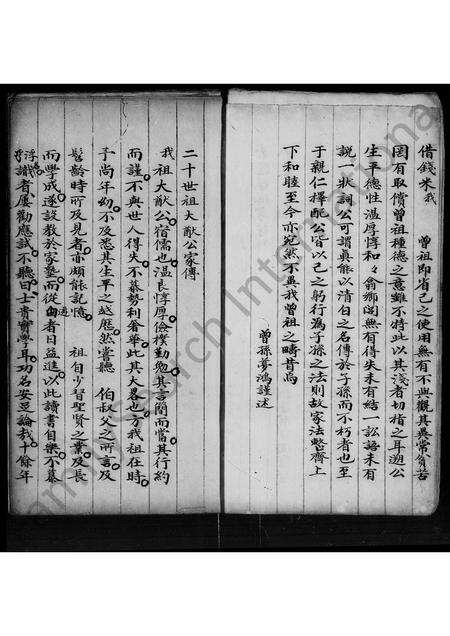 借錢米我　曾祖即省己之使用無有不與觀其異常負苦
罔有取償曾祖種德之意雖不特此以其淺者切指之耳遡公
生平德性溫厚惇和々翕鄉閭無有得失未有結一訟語未有
說一狀詞公可謂真能以清白之名傳於子孫而不朽者也至
于親仁擇配公皆以己之躬行為子孫之法則故家法整齊上
下和睦至今亦宛然不異我曾祖之疇昔焉
曾孫夢鴻謹述
二十世祖大猷公家傳
我祖大猷公宿儒也溫良惇厚儉樸勤勉其言簡而當其行約
而謹不與世人得失不慕勢利奢華此其大畧也方我祖在時
予尚年幼不及悉其生平之越歷然嘗聽　伯叔父之所言及
髫齡時所及見者亦頗能記憶　祖自少習聖賢之業及長
而學成遂設教於家塾而從遊者日益進以此讀書自樂不慕
浮識者屢勸應試不聽曰士貴實學耳功名安足論哉十餘年
Familysearch International